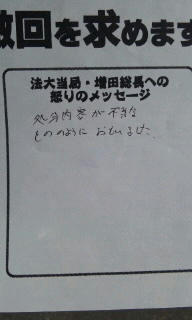 撤回を求めます
法大当局・増田総長への
怒りのメッセージ
処分内容が不当な
もののように おもいました